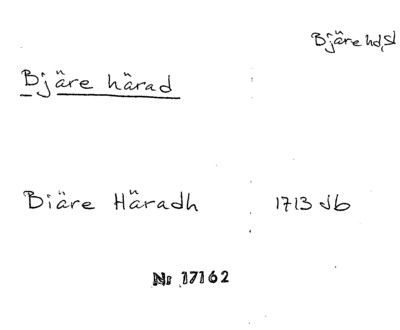 Bjäre hd, Sk
Bjäre härad
Biäre Häradh 1713 Jb
Nr 17162